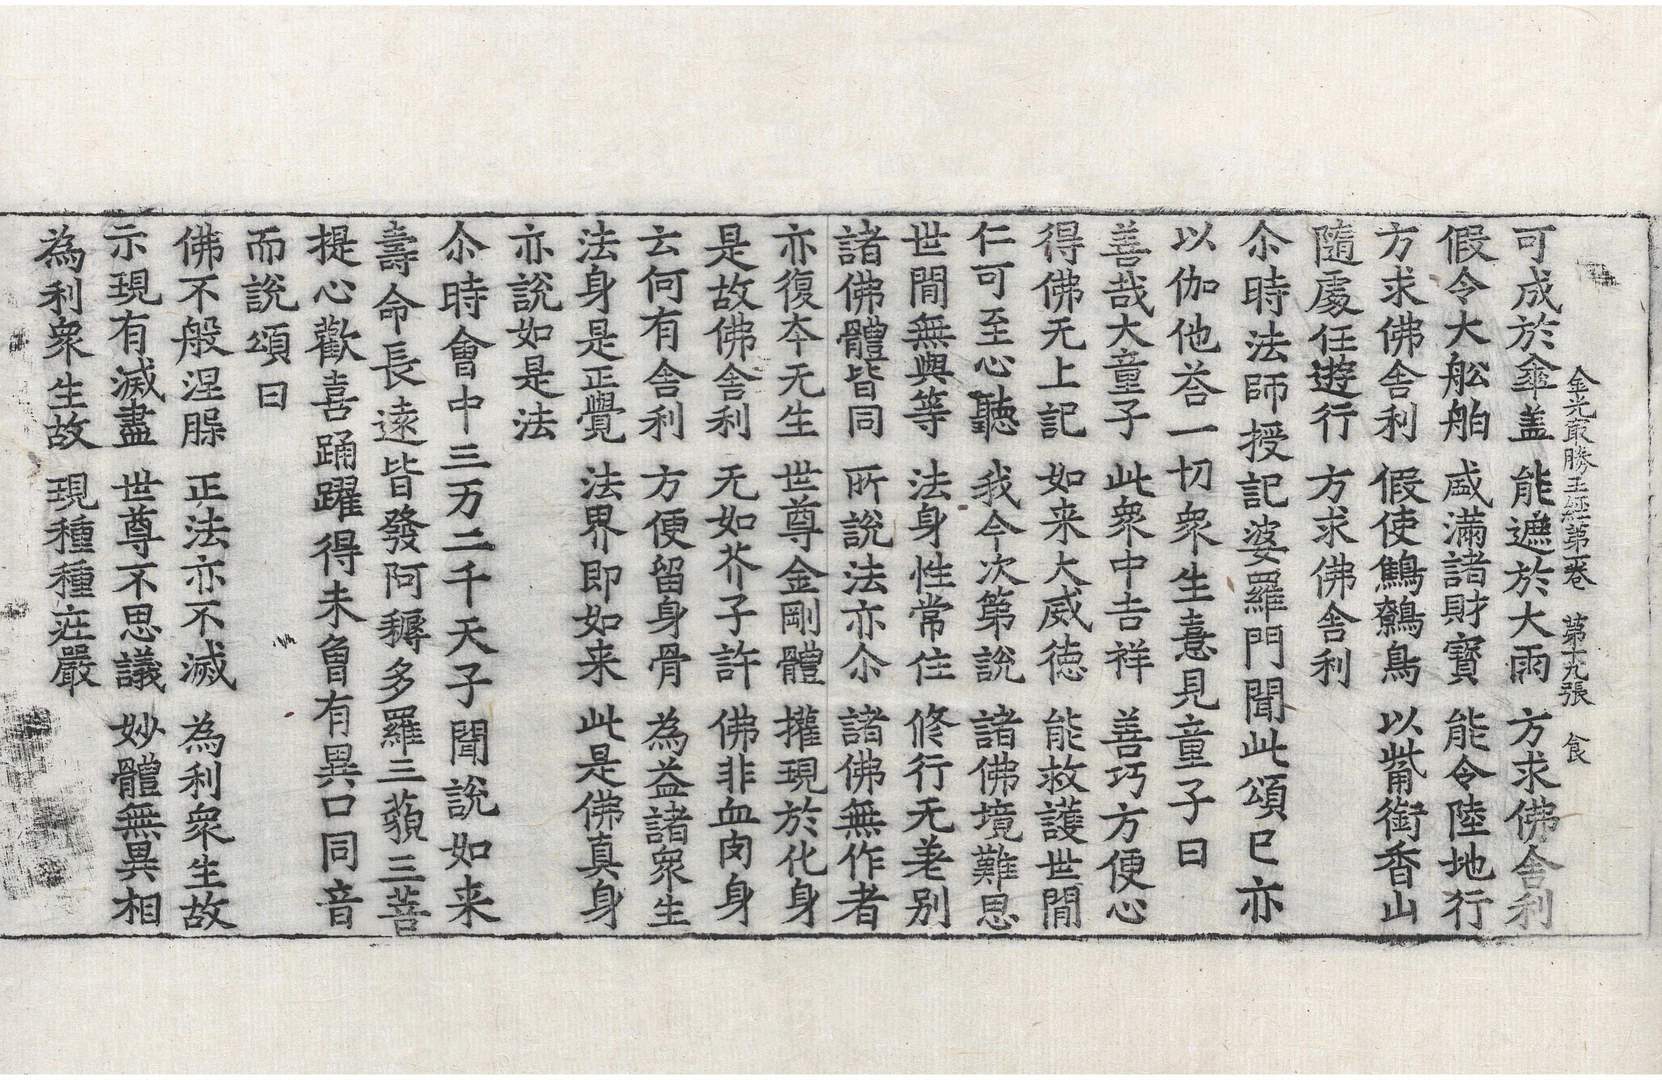 金光最勝王經第一卷　第十九張　食
可成於傘盖　能遮於大雨　方求佛舎利
假令大舩舶　盛滿諸財寶　能令陸地行
方求佛舎利　假使鷦鷯鳥　以觜銜香山
隨處任遊行　方求佛舎利
尒時法師授記婆羅門聞此頌已亦
以伽他荅一切衆生憙見童子曰
善哉大童子　此衆中吉祥　善巧方便心
得佛无上記　如来大威徳　能救護世閒
仁可至心聽　我今次第說　諸佛境難思
世閒無與等　法身性常住　修行无差別
諸佛體皆同　所說法亦尒　諸佛無作者
亦復夲无生　世尊金剛體　攉現於化身
是故佛舎利　无如芥子許　佛非血肉身
云何有舎利　方便留身骨　為益諸衆生
法身是正覺　法界即如来　此是佛真身
亦說如是法
尒時會中三万二千天子聞說如来
壽命長遠皆發阿耨多羅三藐三菩
提心歡喜踊躍得未曾有異口同音
而說頌曰
佛不般涅槃　正法亦不滅　為利衆生故
示現有滅盡　世尊不思議　妙體無異相
為利衆生故　現種種莊嚴